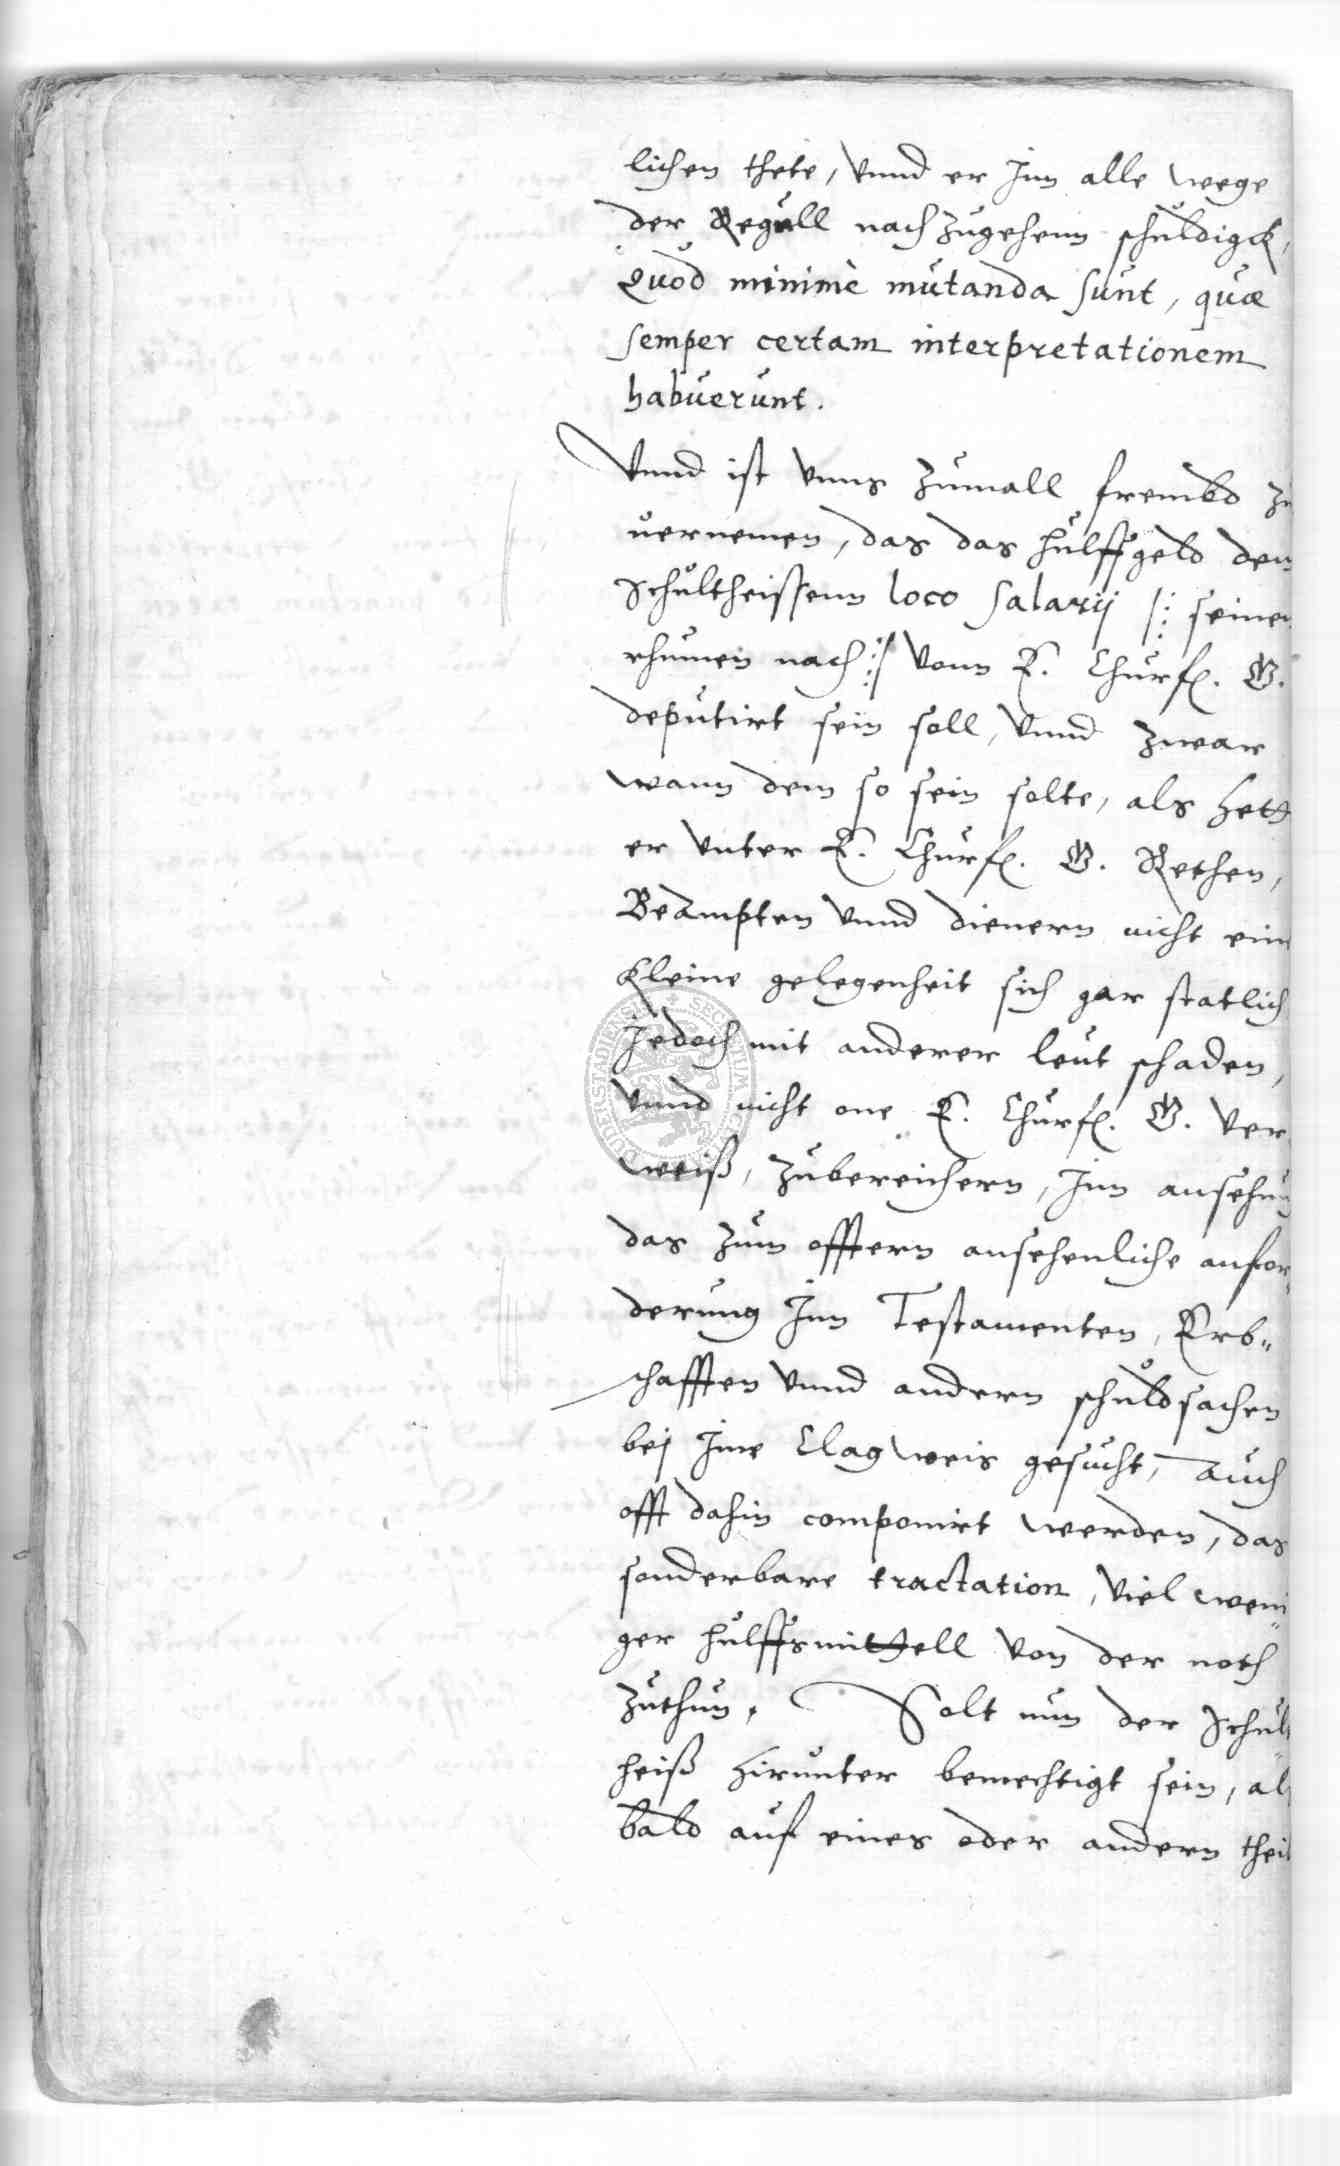 lichen thete, Vnnd er Jnn alle wege
der Regull nach zugehenn schuldigk,
Quod minimè mutanda sunt, quæ
semper certam interpretationem
habuerunt.
Vnnd ist Vnns zumall frembd zu
uernemen, das das hulffgeld dem
Schultheissenn loco Salarij /: seinem
rhumen nach :/ Vonn E. Churf. G.
deputirt sein soll, Vnnd zwar
wann dem so sein solte, als hett
er Vnter E. Churf. G. Rethen,
Beampten Vnnd dienern nicht eine
kleine gelegenheit sich gar statlich
Jedoch mit anderer leut schaden,
Vnnd nicht one E. Churf. G. Ver-
weiß, zubereichern, Jnn ansehung
das zum offtern ansehenliche anfor-
derung Jnn Testamenten, Erb-
schafften Vnnd andern schuldsachen
bej Jme Clagweis gesucht, Auch
offt dahin componirt werden, das
sonderbare tractation, Viel weni-
ger hulffsmittell Von der noth
zuthun. Solt nun der Schult-
heiß hirunter bemechtigt sein, als
bald auf eines oder andern theil
SECRETUM
DUDERSTADIENSIS